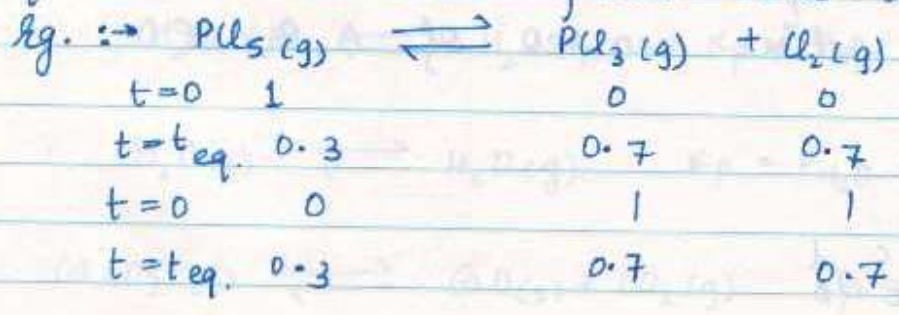 Eg. :→ PCl5 (g) ⇌ PCl3 (g) + Cl2 (g)
t=0 1 0 0
t=teq. 0.3 0.7 0.7
t=0 0 1 1
t=teq. 0.3 0.7 0.7